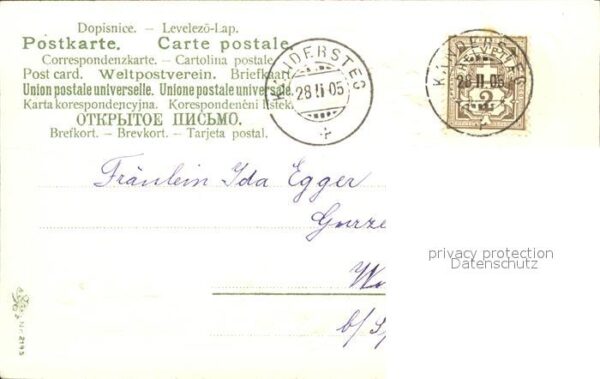 Dopisnice. – Levelező-Lap.
Postkarte. Carte postale.
Correspondenzkarte. – Cartolina postale
Post card. Weltpostverein. Briefkaart.
Union postale universelle. Unione postale universale.
Karta korespondencyjna. Korespondenční lístek.
ОТКРЫТОЕ ПИСЬМО.
Brefkort. – Brevkort. – Tarjeta postal.
KANDERSTEG
28 II 05
KANDERSTEG
HELVETIA
28 II 05
2
Fräulein Ida Egger
privacy protection
Datenschutz
b/